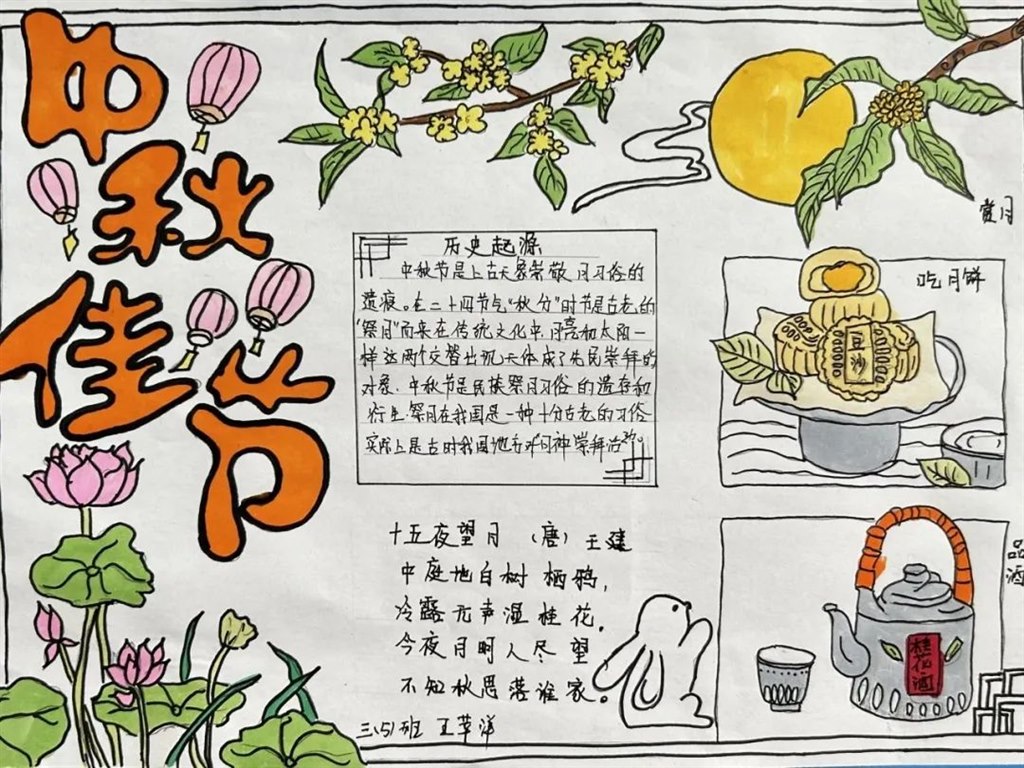 中秋佳节
赏月
历史起源
中秋节是上古天象崇敬月习俗的
遗痕。在二十四节气“秋分”时节是古老的
“祭月”而来在传统文化中月亮和太阳一
样这两个交替出现天体成了先民崇拜的
对象。中秋节是民族祭月习俗的遗存和
衍生.祭月在我国是一种十分古老的习俗
实际上是古时我国地方对月神崇拜活
吃月饼
豆沙
十五夜望月 (唐) 王建
中庭地白树栖鸦,
冷露无声湿桂花.
今夜月明人尽望
不知秋思落谁家。
品酒
桂花酒
三(5)班